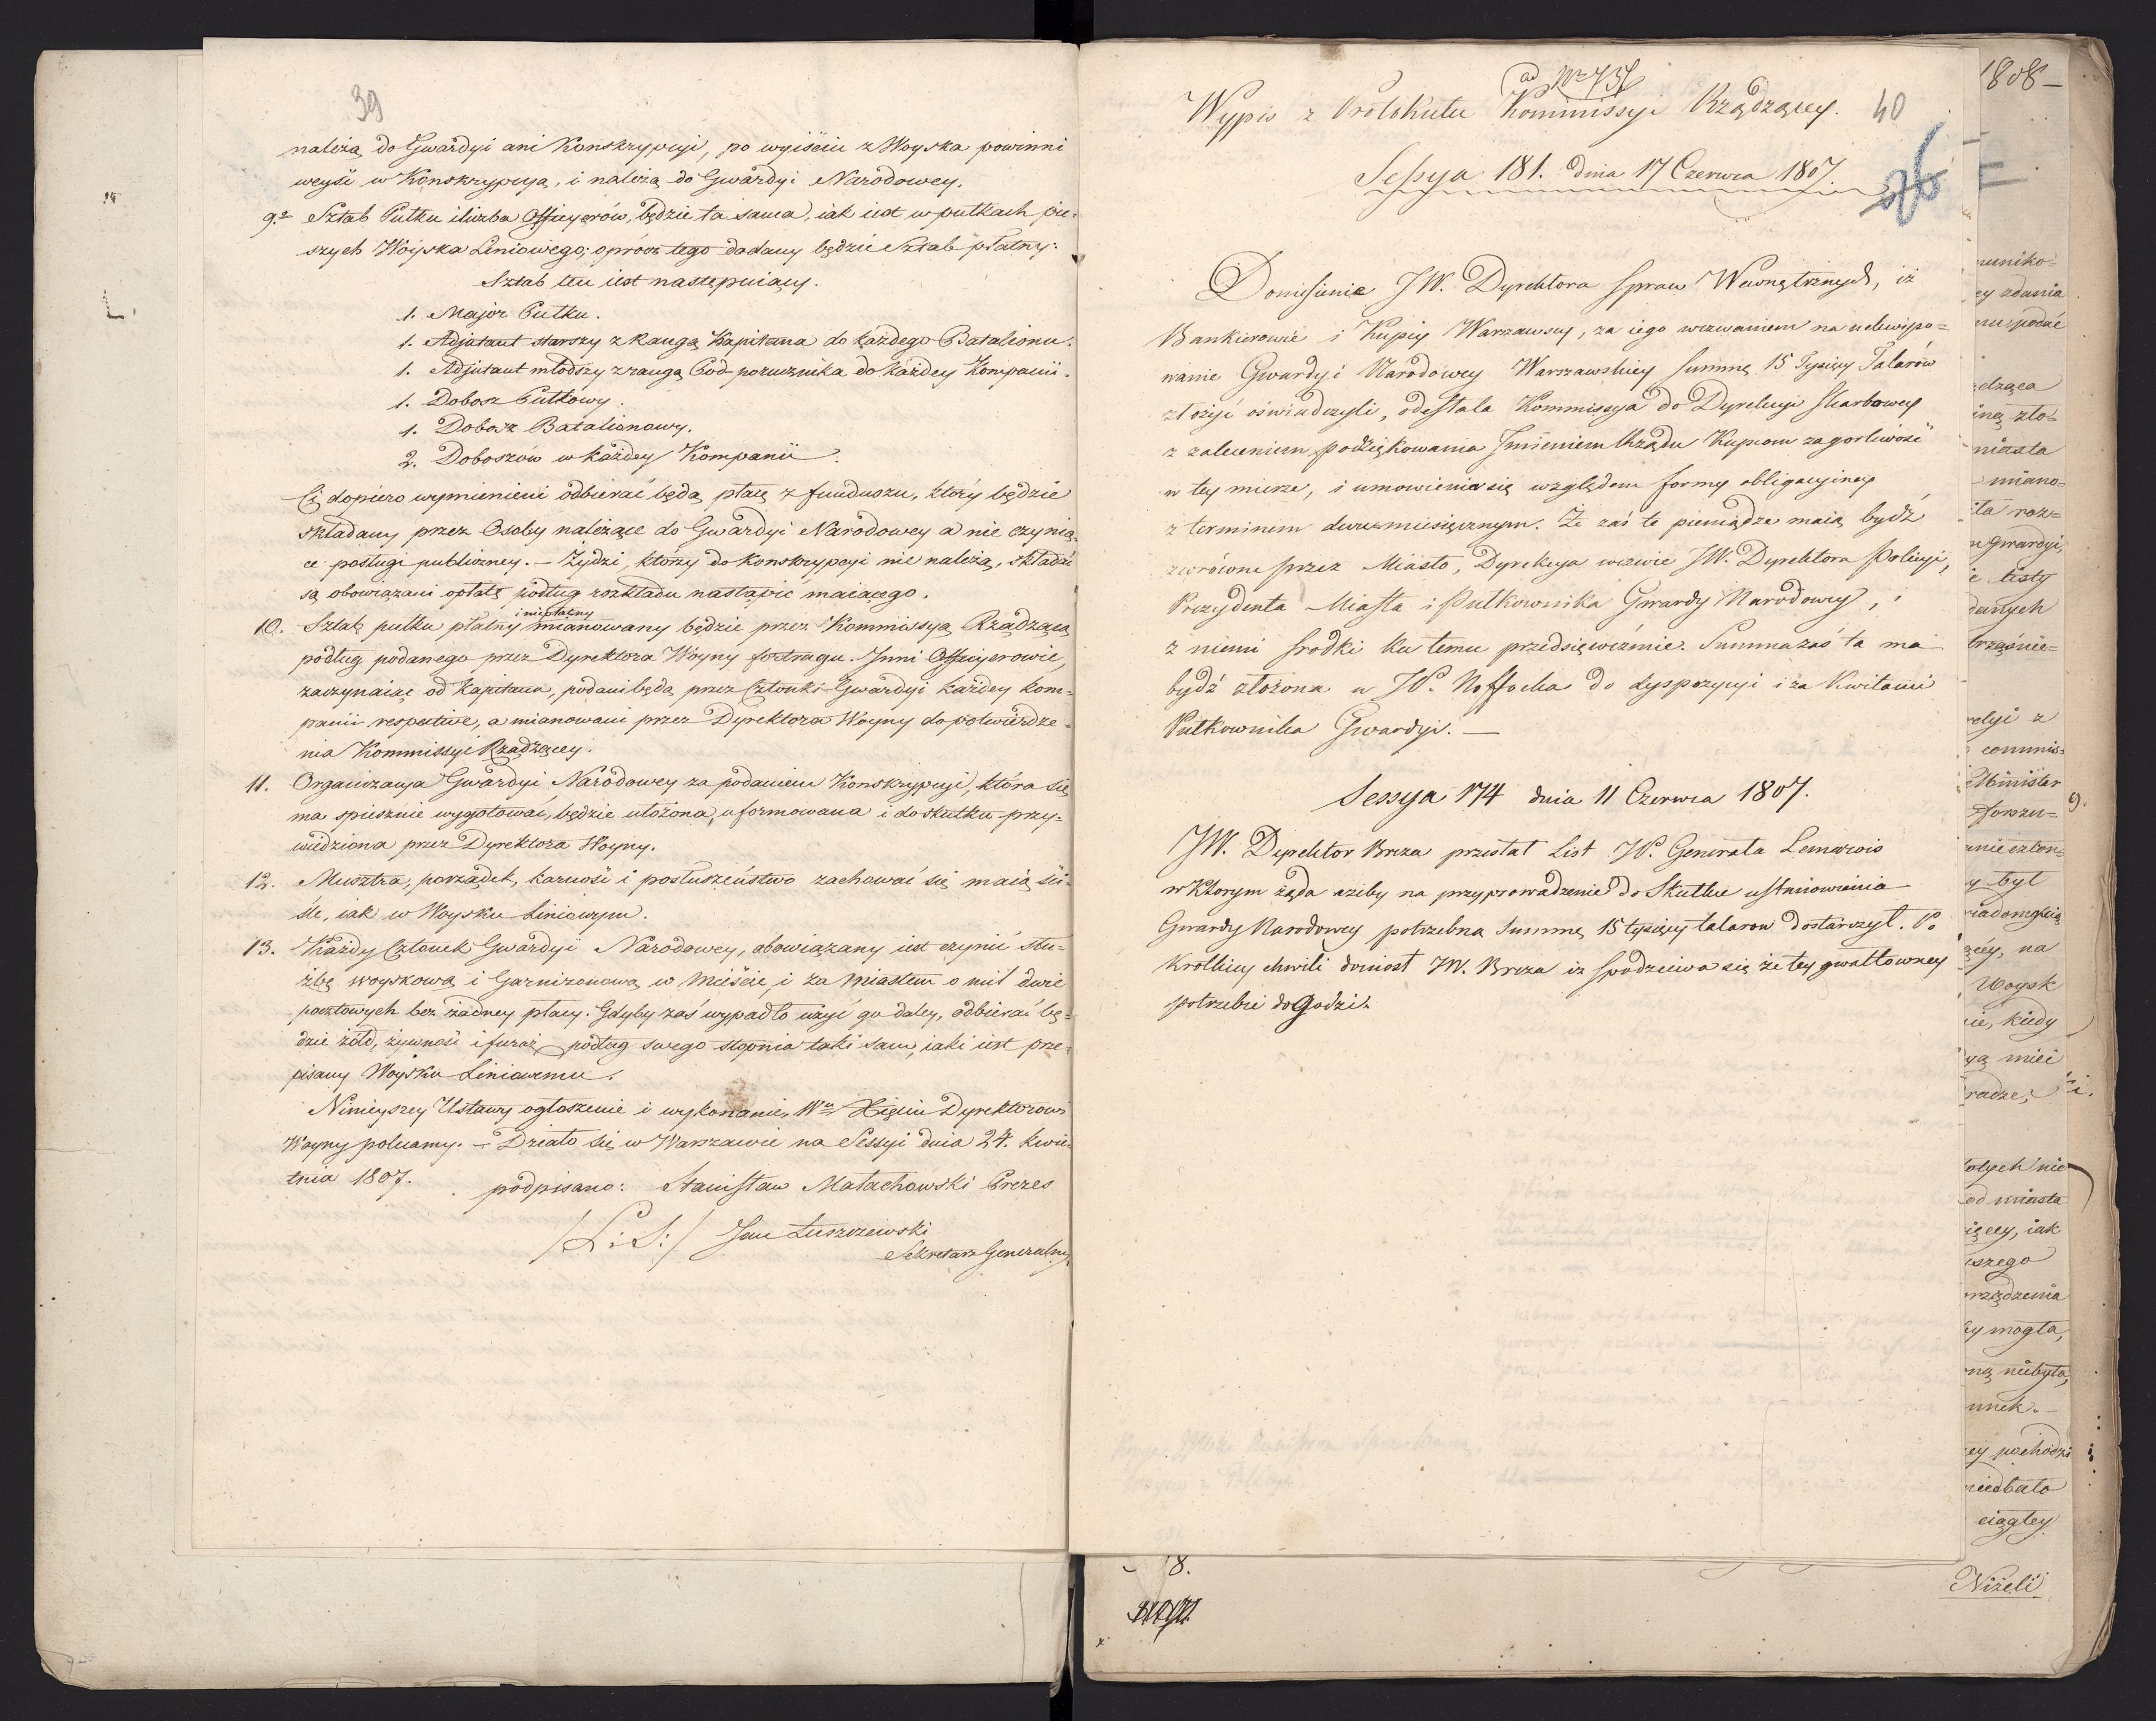 39
należą do Gwardyi ani Konskrypcyi, po wyiściu z Woyska powinni
weyść w Konskrypcyą, i należą do Gwardyi Narodowey.
9.º Sztab Pułku i liczba Officyerów, będzie ta sama, iak iest w pułkach pie-
szych Woyska Liniowego; oprócz tego dodany będzie Sztab płatny:
Sztab ten iest następuiący.
1. Major Pułku.
1. Adjutant starszy z rangą Kapitana do każdego Batalionu.
1. Adjutant młodszy z rangą Pod-porucznika do każdey Kompanii.
1. Dobosz Pułkowy.
1. Dobosz Batalionowy.
2. Doboszów w każdey Kompanii.
Ci dopiero wymienieni odbierać będą płacę z funduszu, który będzie
składany przez Osoby należące do Gwardyi Narodowey a nie czynią-
ce posługi publiczney. – Żydzi, którzy do konskrypcyi nie należą, składać
są obowiązani opłatę podług rozkładu nastąpić maiącego.
i niepłatny
10. Sztab pułku płatny mianowany będzie przez Kommissyą Rządzącą
podług podanego przez Dyrektora Woyny fortragu. Inni Officyerowie,
zaczynaiąc od Kapitana, podani będą przez Członki Gwardyi każdey kom-
panii respective, a mianowani przez Dyrektora Woyny do potwierdze-
nia Kommissyi Rządzącey.
11. Organizacya Gwardyi Narodowey za podaniem Konskrypcyi, która się
ma spiesznie wygotować, będzie ułożona, uformowana i do skutku przy-
wiedziona przez Dyrektora Woyny.
12. Musztra, porządek, karność i posłuszeństwo zachować się maią ści-
śle, iak w Woysku Liniowym.
13. Każdy Członek Gwardyi Narodowey, obowiązany iest czynić słu-
żbę woyskową i Garnizonową w Mieście, i za Miastem o mil dwie
pocztowych bez żadney płacy. Gdyby zaś wypadło użyć go daley, odbierać bę-
dzie żołd, żywność i furaż podług swego stopnia taki sam, iaki iest prze-
pisany Woysku Liniowemu.
Ninieyszey Ustawy ogłoszenie i wykonanie, Wu Xięciu Dyrektorowi
Woyny polecamy. – Działo się w Warszawie na Sessyi dnia 24. kwie-
tnia 1807.
podpisano: Stanisław Małachowski Prezes
/L:S:/ Jan Łuszczewski
Sekretarz Generalny
ad Nro 737
Wypis z Protokułu Kommissyi Rządzącey. 40
Sessya 181. dnia 17 Czerwca 1807.
Doniesienie JW. Dyrektora Spraw Wewnętrznych, iż
Bankierowie i Kupcy Warszawscy, za iego wezwaniem na uekwipo-
wanie Gwardyi Narodowey Warszawskiey Summę 15 Tysięcy Talarów
złożyć oświadczyli, odesłała Kommissya do Dyrekcyi Skarbowey
z zaleceniem podziękowania Imieniem Rządu Kupcom za gorliwość
w tey mierze, i umowienia się względem formy obligacyiney
z terminem dwumiesięcznym. Że zaś te pieniądze maią bydź
zwrócone przez Miasto, Dyrekcya wezwie JW. Dyrektora Policyi,
Prezydenta Miasta i Pułkownika Gwardyi Narodowey, i
z niemi srodki ku temu przedsięweźmie. Summa zaś ta ma
bydź złożona u JP. Noffocka do dyspozycyi i za Kwitami
Pułkownika Gwardyi. —
Sessya 174 dnia 11 Czerwca 1807.
JW. Dyrektor Breza przesłał List JP. Generała Lemarois
w ktorym żąda ażeby na przyprowadzenie do Skutku ustanowienia
Gwardyi Narodowey potrzebną Summę 15 tysięcy talarow dostarczył. Po
krotkiey chwili doniosł JW. Breza iż spodziewa się że tey gwałtowney
potrzebie dogodzi.
1808–
muniko-
ey zdania
podać
dząca
iną zło-
miasta
miano-
ta roz-
Gwardyi,
listy
danych
trząśnie-
z
commis-
Minister
9.
forszu-
człon-
y był
iadomością
ącey, na
Woysk
ie, kiedy
yą mieć
radze,
nie
od miasta
ięcey, iak
szego
rządzenia
ey mogła,
ną niebyła,
unek.
ey pochodzi
niedbało
ciągłey
8.
Niżeli